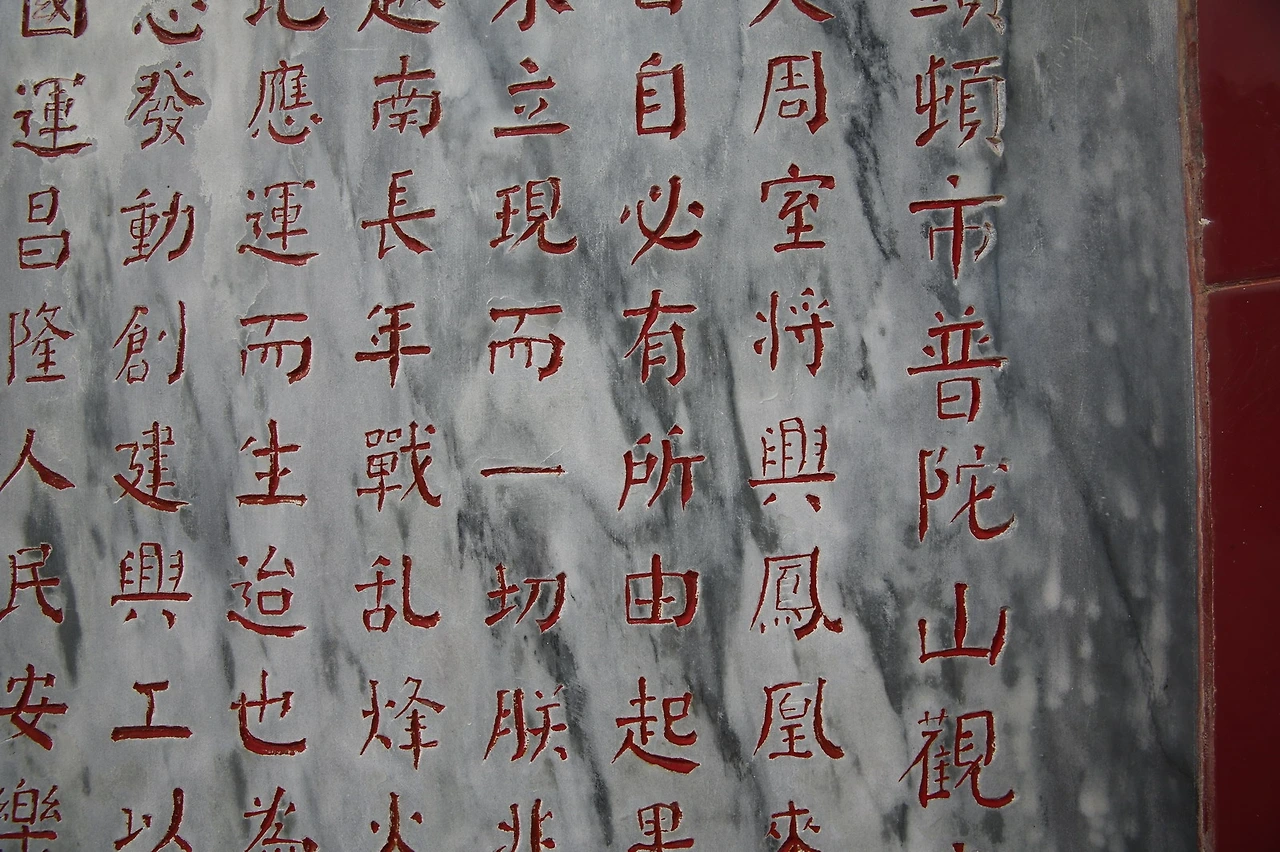 頓市普陀山觀
周室將興鳳凰來
自必有所由起果
立現而一切朕非
南長年戰乱烽火
應運而生迨也為
發動創建興工以
國運昌隆人民安樂